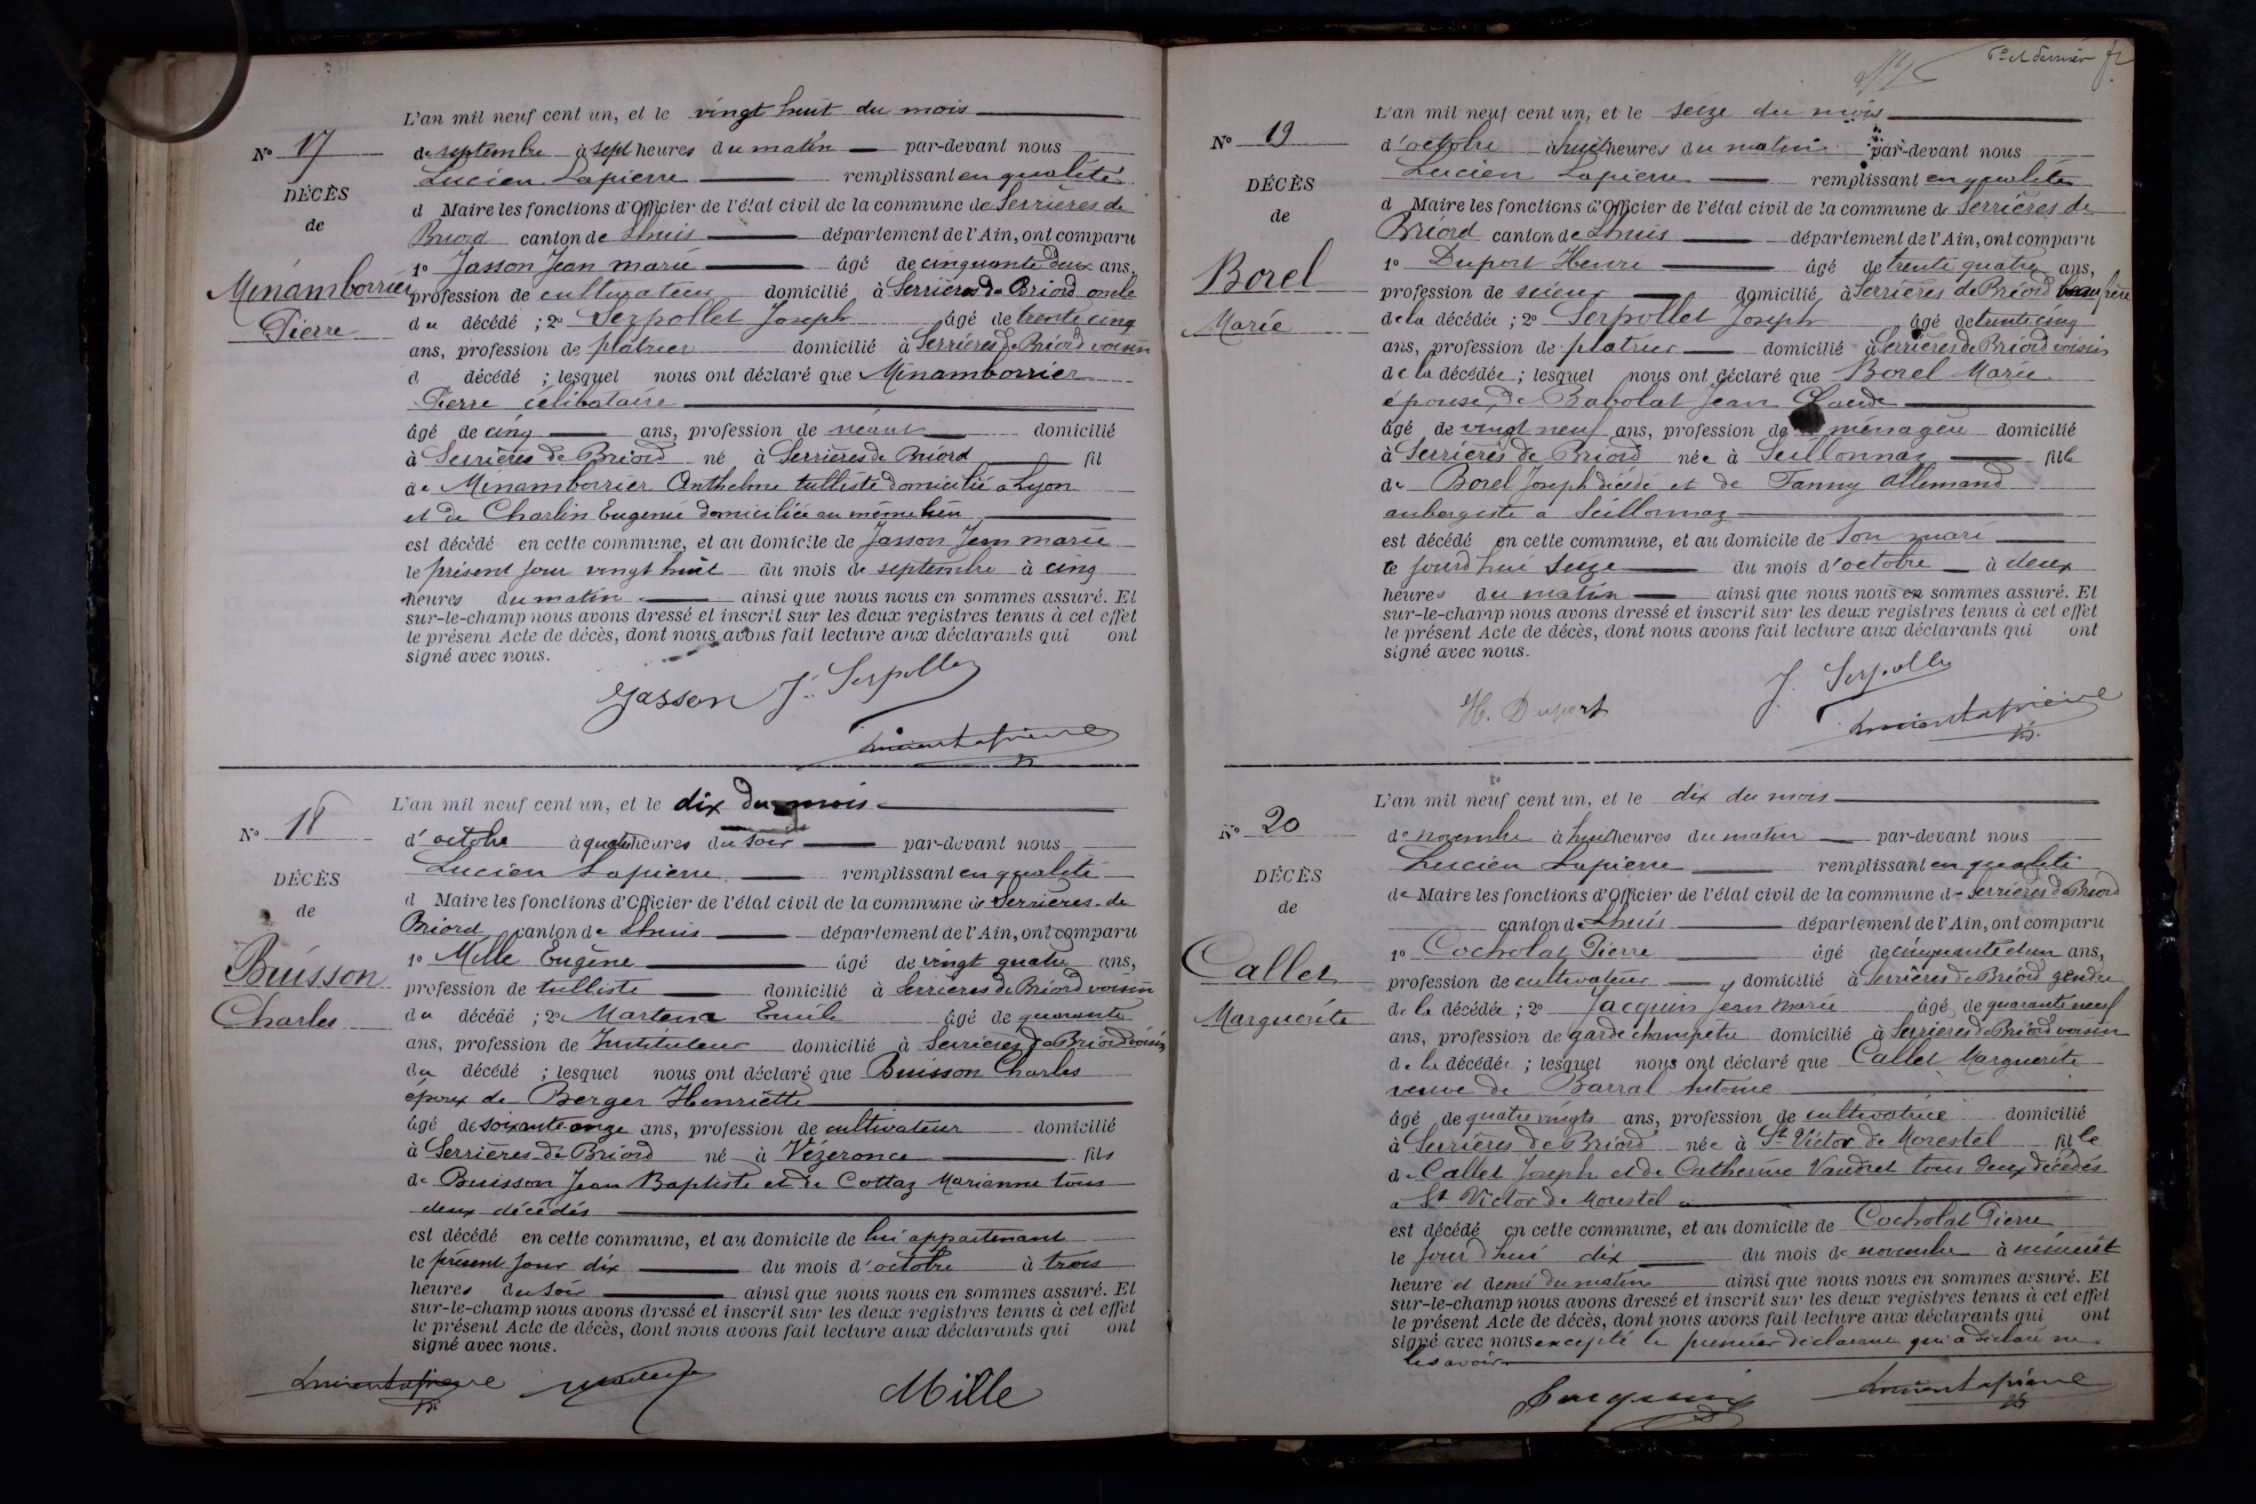 L'an mil neuf cent un, et le vingt huit du mois
N° 17
de septembre à sept heures du matin par-devant nous
Lucien Lapierre remplissant en qualité
DÉCÈS
d Maire les fonctions d'Officier de l'état civil de la commune de Serrières de
de
Briord canton de Lhuis département de l'Ain, ont comparu
Minamborrier
1° Jasson Jean marie âgé de cinquante deux ans,
profession de cultivateur domicilié à Serrières de Briord oncle
Pierre
du décédé ; 2° Serpollet Joseph âgé de trente cinq
ans, profession de plâtrier domicilié à Serrières de Briord voisin
d décédé ; lesquel nous ont déclaré que Minamborrier
Pierre célibataire
âgé de cinq ans, profession de néant domicilié
à Serrières de Briord né à Serrières de Briord fil
de Minamborrier Anthelme tulliste domicilié à Lyon
et de Charlin Eugenie domiciliée au même lieu
est décédé en cette commune, et au domicile de Jasson Jean marie
le présent jour vingt huit du mois de septembre à cinq
heures du matin ainsi que nous nous en sommes assuré. Et
sur-le-champ nous avons dressé et inscrit sur les deux registres tenus à cet effet
le présent Acte de décès, dont nous avons fait lecture aux déclarants qui ont
signé avec nous.
Jasson J. Serpollet
Lucien Lapierre
L'an mil neuf cent un, et le dix du mois
N° 18
d'octobre à quatre heures du soir par-devant nous
Lucien Lapierre remplissant en qualité
DÉCÈS
d Maire les fonctions d'Officier de l'état civil de la commune de Serrières de
de
Briord canton de Lhuis département de l'Ain, ont comparu
1° Mille Eugène âgé de vingt quatre ans,
Buisson
profession de tulliste domicilié à Serrières de Briord voisin
Charles
du décédé ; 2° Emile âgé de quarante
ans, profession de Instituteur domicilié à Serrières de Briord voisin
du décédé ; lesquel nous ont déclaré que Buisson Charles
époux de Berger Henriette
âgé de soixante-onze ans, profession de cultivateur domicilié
à Serrières de Briord né à Vézeronce fils
de Buisson Jean Baptiste et de Cottaz Marianne tous
deux décédés
est décédé en cette commune, et au domicile de lui appartenant
le présent jour dix du mois d'octobre à trois
heures du soir ainsi que nous nous en sommes assuré. Et
sur-le-champ nous avons dressé et inscrit sur les deux registres tenus à cet effet
le présent Acte de décès, dont nous avons fait lecture aux déclarants qui ont
signé avec nous.
Lucien Lapierre Mille
6e et dernier
L'an mil neuf cent un, et le seize du mois
N° 19
d'octobre à huit heures du matin par-devant nous
Lucien Lapierre remplissant en qualité
DÉCÈS
d Maire les fonctions d'Officier de l'état civil de la commune de Serrières de
de
Briord canton de Lhuis département de l'Ain, ont comparu
Borel
1° Duport Henri âgé de trente quatre ans,
profession de scieur domicilié à Serrières de Briord beau frère
Marie
de la décédée ; 2° Serpollet Joseph âgé de trente cinq
ans, profession de platrier domicilié à Serrières de Briord voisin
de la décédée ; lesquel nous ont déclaré que Borel Marie
épouse de Babolat Jean Claude
âgé de vingt neuf ans, profession de ménagère domicilié
à Serrières de Briord née à Seillonnaz fille
de Borel Joseph décédé et de Fanny Allemand
aubergiste à Seillonnaz
est décédé en cette commune, et au domicile de Son mari
ce jourd'hui seize du mois d'octobre à deux
heures du matin ainsi que nous nous en sommes assuré. Et
sur-le-champ nous avons dressé et inscrit sur les deux registres tenus à cet effet
le présent Acte de décès, dont nous avons fait lecture aux déclarants qui ont
signé avec nous.
H. Duport J. Serpollet
Lucien Lapierre
L'an mil neuf cent un, et le dix du mois
N° 20
de novembre à huit heures du matin par-devant nous
Lucien Lapierre remplissant en qualité
DÉCÈS
de Maire les fonctions d'Officier de l'état civil de la commune de Serrières de Briord
de
canton de Lhuis département de l'Ain, ont comparu
1° Cocholat Pierre âgé de cinquante et un ans,
Callet
profession de cultivateur domicilié à Serrières de Briord gendre
Marguerite
de la décédée ; 2° Jacquin Jean Marie âgé de quarante neuf
ans, profession de garde champetre domicilié à Serrières de Briord voisin
de la décédée ; lesquel nous ont déclaré que Callet Marguerite
veuve de Barral Antoine
âgé de quatre vingts ans, profession de cultivatrice domicilié
à Serrières de Briord née à St Victor de Morestel fille
de Callet Joseph et de Catherine Vaudret tous deux décédés
a St Victor de Morestel
est décédé en cette commune, et au domicile de Cocholat Pierre
le jourd'hui dix du mois de novembre à minuit
heure et demi du matin ainsi que nous nous en sommes assuré. Et
sur-le-champ nous avons dressé et inscrit sur les deux registres tenus à cet effet
le présent Acte de décès, dont nous avons fait lecture aux déclarants qui ont
signé avec nous excepté le premier déclarant qui a déclaré ne
le savoir
Jacquin Lucien Lapierre